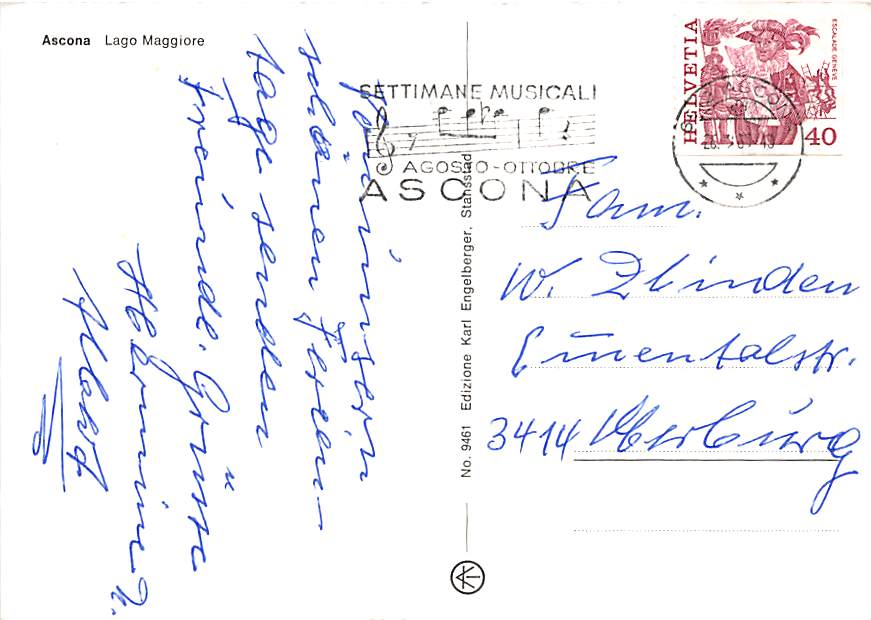 Ascona Lago Maggiore
Von unseren
schönen Ferien-
tage senden
freundl. Grüsse
Hermine u.
SETTIMANE MUSICALI
AGOSTO-OTTOBRE
ASCONA
HELVETIA
ESCALADE GENÈVE
40
ASCONA
Fam.
W. Zbinden
Emmentalstr.
3414 Oberburg
No. 9461 Edizione Karl Engelberger, Stansstad